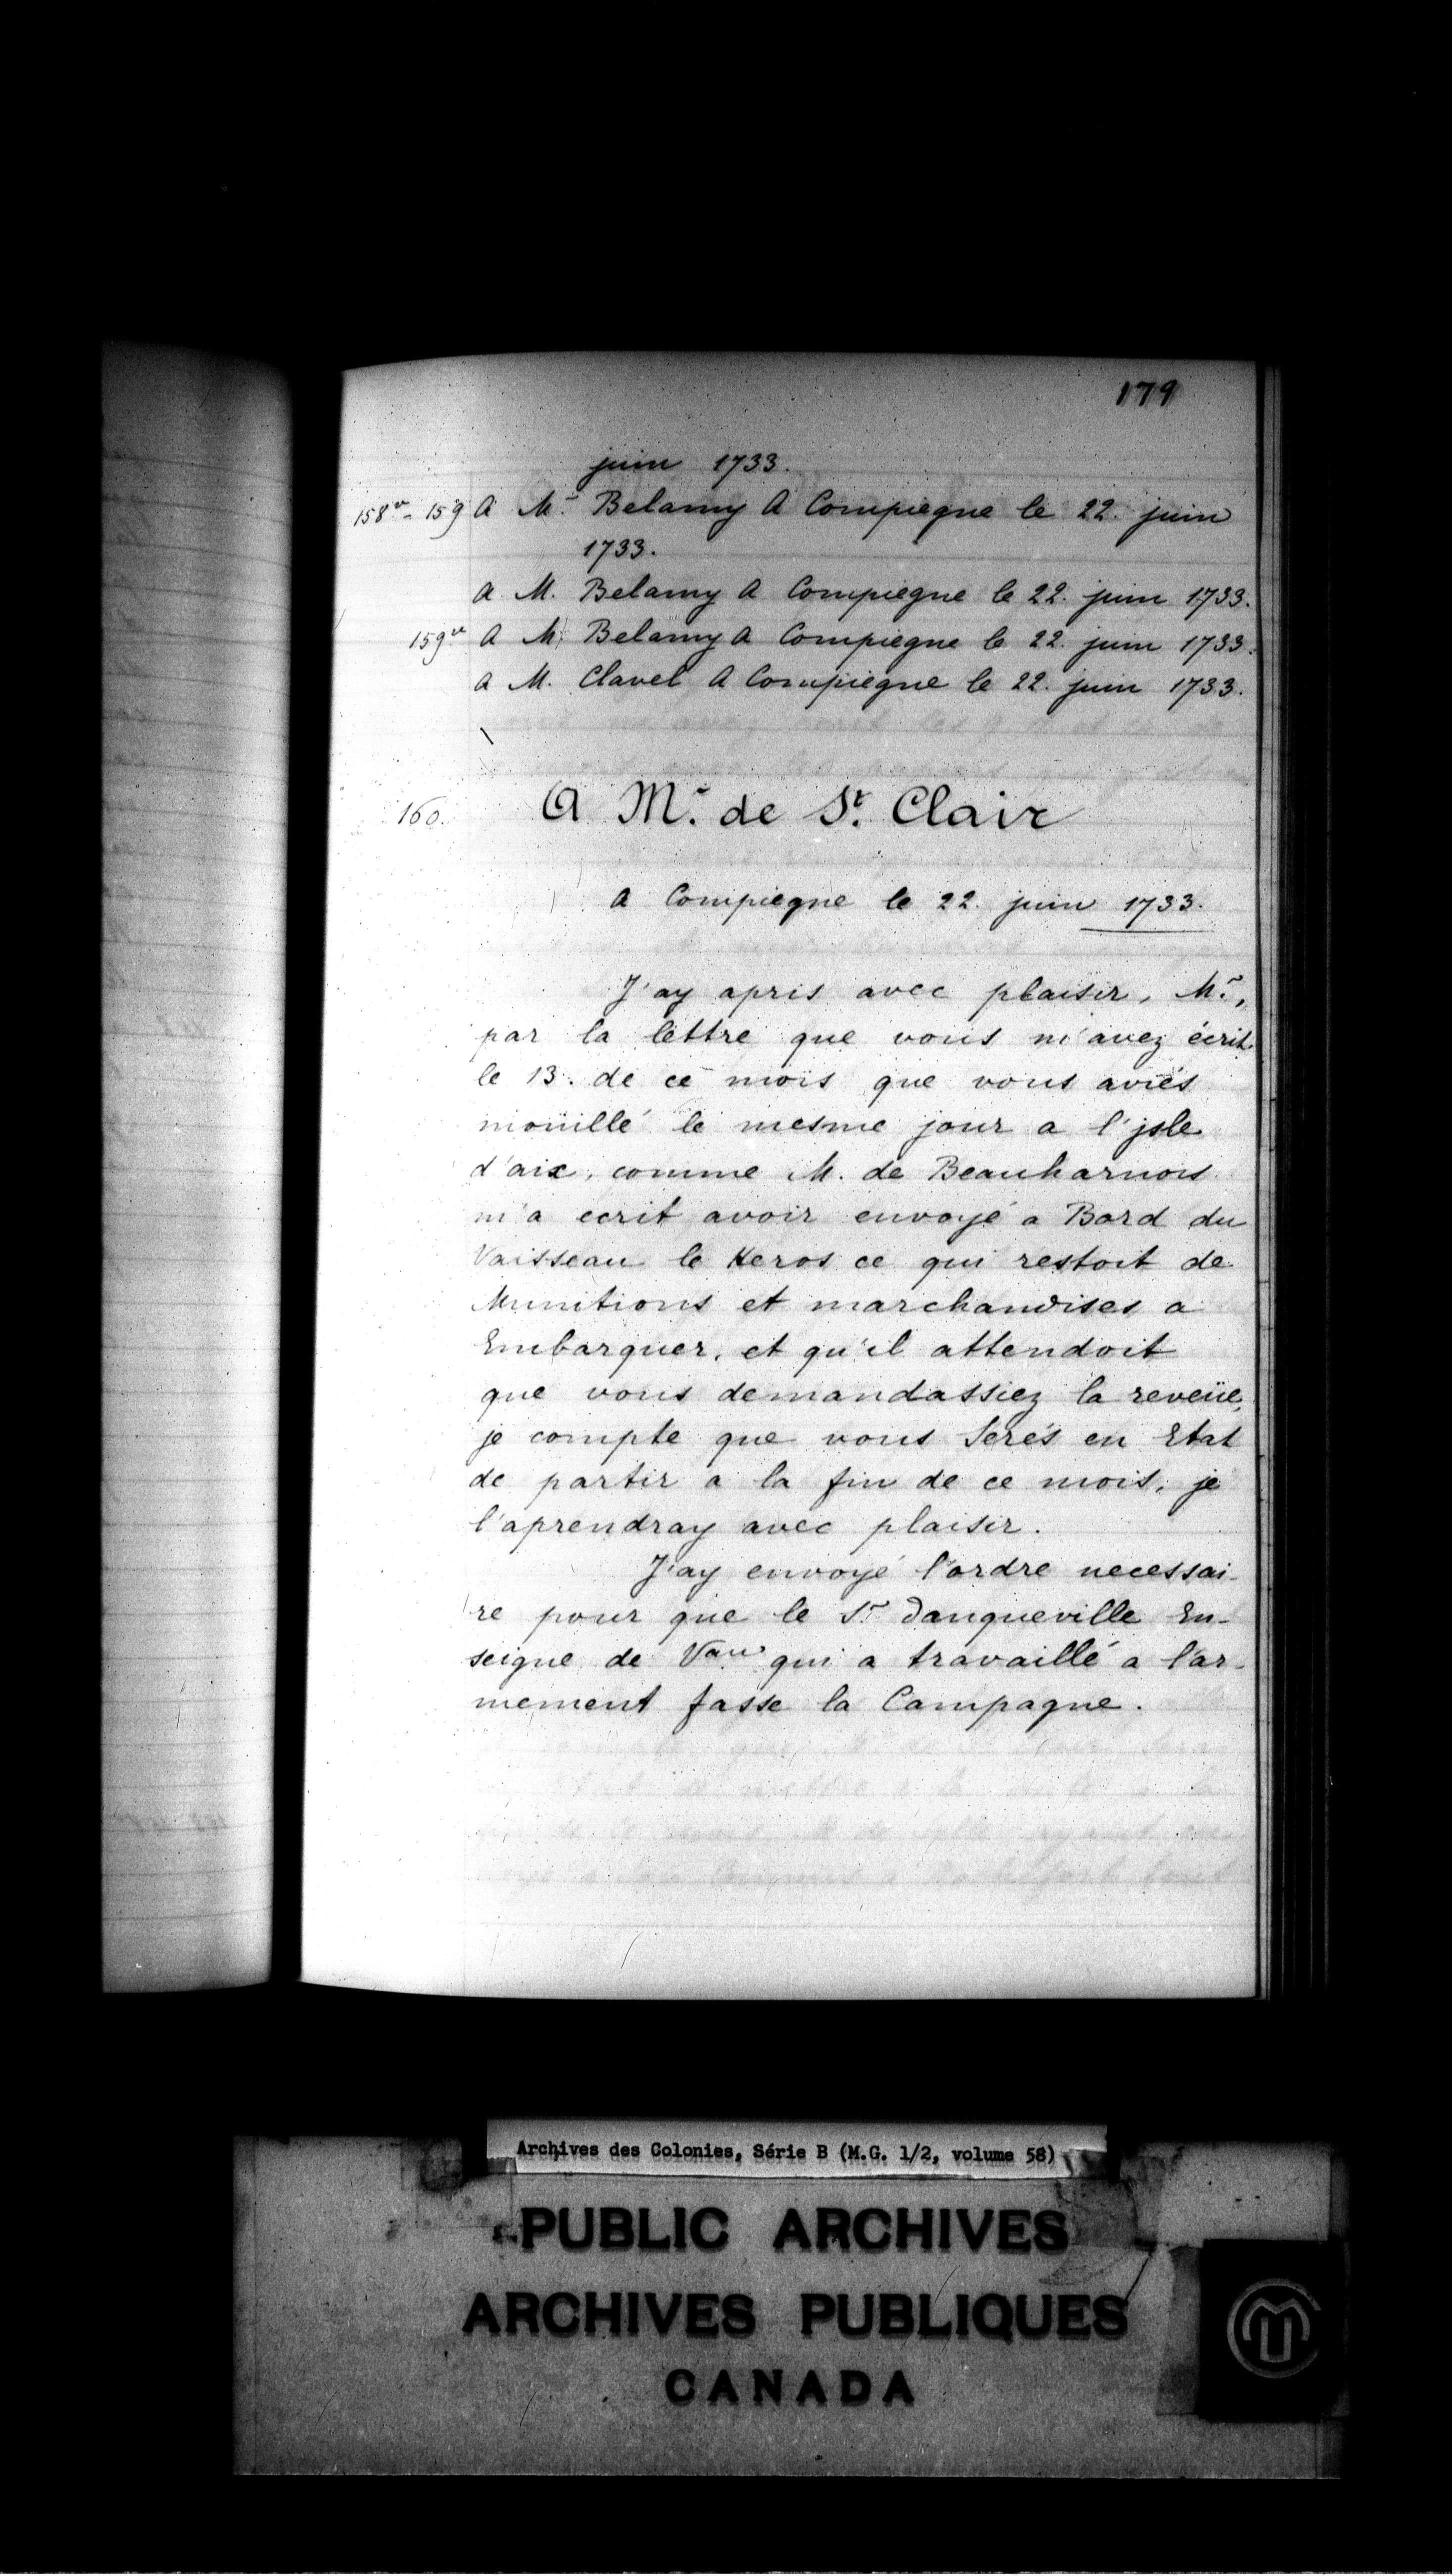 179
juin 1733.
158vo - 159 A Mr. Belamy A Compiegne le 22. juin
1733.
a M. Belamy A Compiegne le 22. juin 1733.
159vo A M. Belamy A Compiegne le 22. juin 1733.
a M. Clavel A Compiegne le 22. juin 1733.
160. A Mr. de St. Clair
A Compiegne le 22. juin 1733.
J'ay apris avec plaisir, Mr.,
par la lettre que vous m'avez écrit
le 13. de ce mois que vous aviés
moüillé le mesme jour a l'jsle
d'aix, comme M. de Beauharnois
m'a ecrit avoir envoyé a Bord du
Vaisseau le Heros ce qui restoit de
Munitions et marchandises a
Embarquer, et qu'il attendoit
que vous demandassiez la reveüe,
je compte que vous Serés en Etat
de partir a la fin de ce mois, je
l'aprendray avec plaisir.
J'ay envoyé l'ordre necessai-
re pour que le Sr Danqueville En-
seigne de Vau qui a travaillé a l'ar-
mement fasse la Campagne.
Archives des Colonies, Série B (M.G. 1/2, volume 58)
PUBLIC ARCHIVES
ARCHIVES PUBLIQUES
CANADA